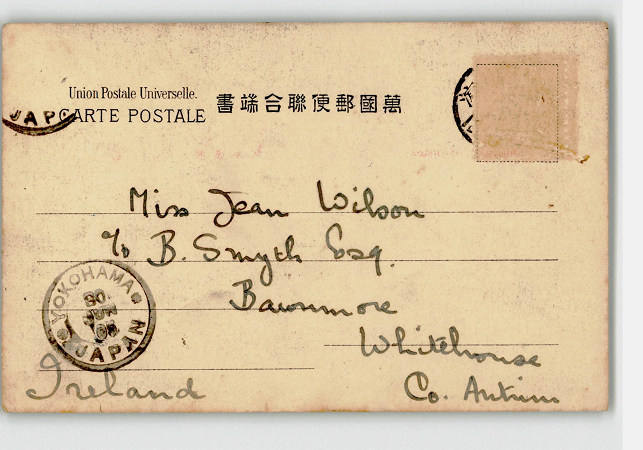 Union Postale Universelle.
CARTE POSTALE 書端合聯便郵國萬
JAPA
Miss Jean Wilson
c/o B. Smyth Esq.
Bawnmore
Whitehouse
Co. Antrim
Ireland
YOKOHAMA
JAPAN